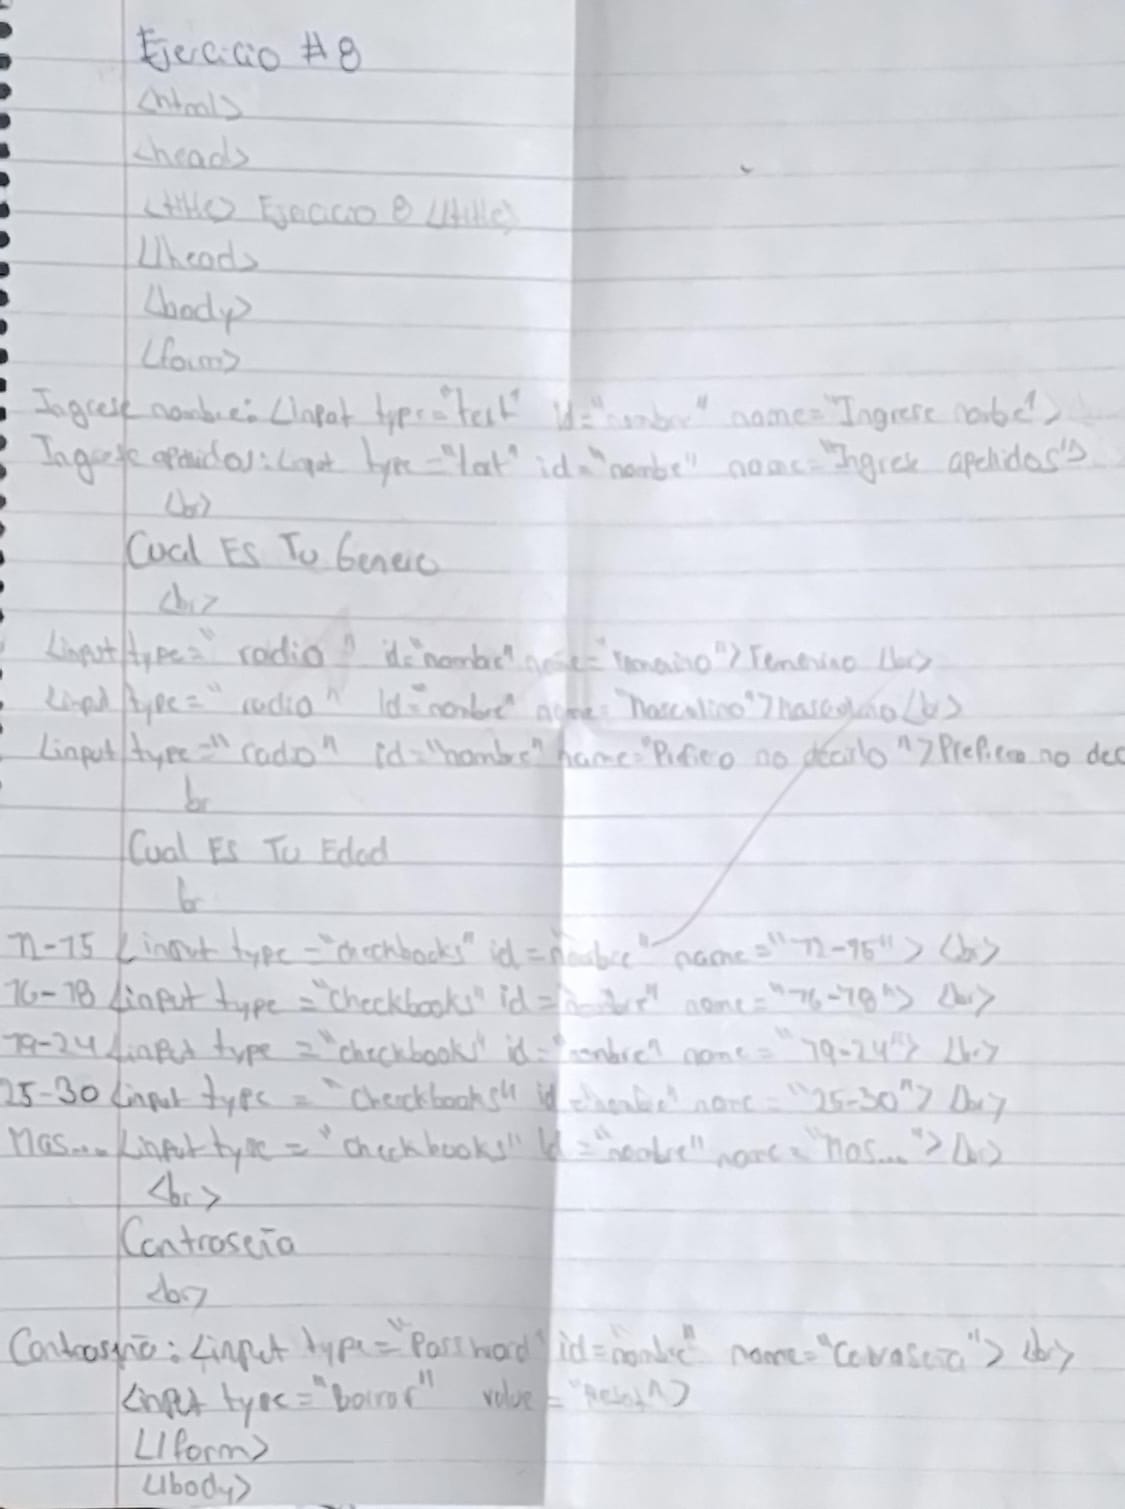 Ejercicio #8
<html>
<head>
<title> Ejercicio 8 </title>
</head>
<body>
<form>
Ingrese nombre: <input type="text" id="nombre" name="Ingrese nombe">
Ingrese apeidos: <input type="text" id="nombe" name="Ingrese apehidos">
<br>
Cual Es Tu Genero
<br>
<input type=" radio " id="nombre" name="Femenino"> Femenino <br>
<input type=" radio " id="nombre" name="Masculino"> Masculino <br>
<input type=" rado " id="nombre" name="Prefiero no decirlo "> Prefiero no dec
br
Cual Es Tu Edad
br
12-15 <input type="checkbooks" id="nombre" name="12-15"> <br>
16-18 <input type="checkbooks" id="nombre" name="16-18"> <br>
19-24 <input type="checkbooks" id="nombre" name="19-24"> <br>
25-30 <input type="checkbooks" id="nombre" name="25-30"> <br>
Mas... <input type="checkbooks" id="nombre" name="Mas..."> <br>
<br>
Contraseña
<br>
Contraseña: <input type="Password" id="nombre" name="Contraseña"> <br>
<input type="borrar" value="Reset">
</form>
</body>